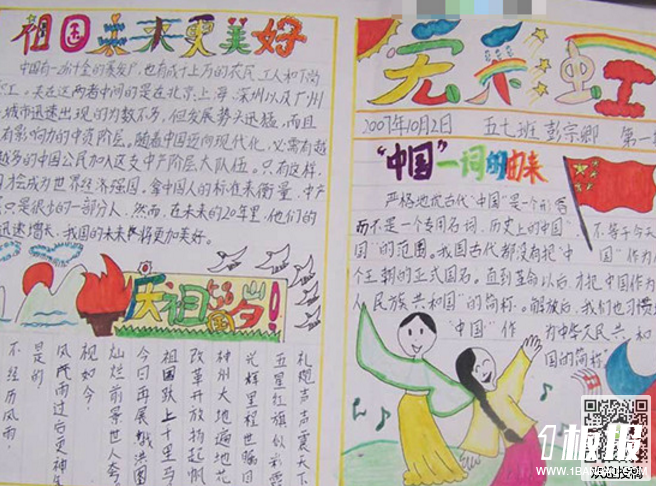 祖国未来更美好
中国有一
也有成千上万的农民、工人和下岗
工。夹在这两者中间的是在北京、上海、深圳以及广州
城市迅速出现的为数不多,但发展势头迅猛,而且
有影响力的中资阶层。随着中国迈向现代化,必需有越
越多的中国公民加入这支中产阶层大队伍。只有这样,
才会成为世界经济强国,拿中国人的标准来衡量,中产
只是很少的一部分人,然而,在未来的20年里,他们的
迅速增长,我国的未来将更加美好。
庆祖国58岁!
礼炮声声震天下
五星红旗似彩霞
光辉里程世瞩目
神州大地遍地花
改革开放扬起帆
祖国跃上千里马
今日再展宏图
灿烂前景世人夸
视如今,
风雨过后更神
是的
不经历风雨,
天虹
2007年10月2日
五七班 彭宗卿
第一
"中国"一词的由来
严格地说古代"中国"是一个形容
而不是一个专用名词,历史上的中国
不等于今天
国"的范围。我国古代都没有把"中
国"作为
个王朝的正式国名。直到革命以后,才把中国作为
"民族共和国"的简称。解放后,我们也习惯
"中国"作
为中华人民共和
国的简称
1板报
WWW.1BANBAO.COM
欢迎投稿